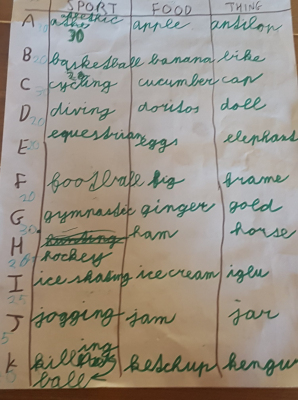 SPORT FOOD THING
A athletic apple antilop
30
B basketball banana bike
C cycling cucumber cap
D diving doritos doll
E equestrian eggs elephant
F football fig frame
G gymnastic ginger gold
H hunting ham horse
hockey
I ice skating ice cream iglu
J jogging jam jar
K killing ketchup kengu
ball